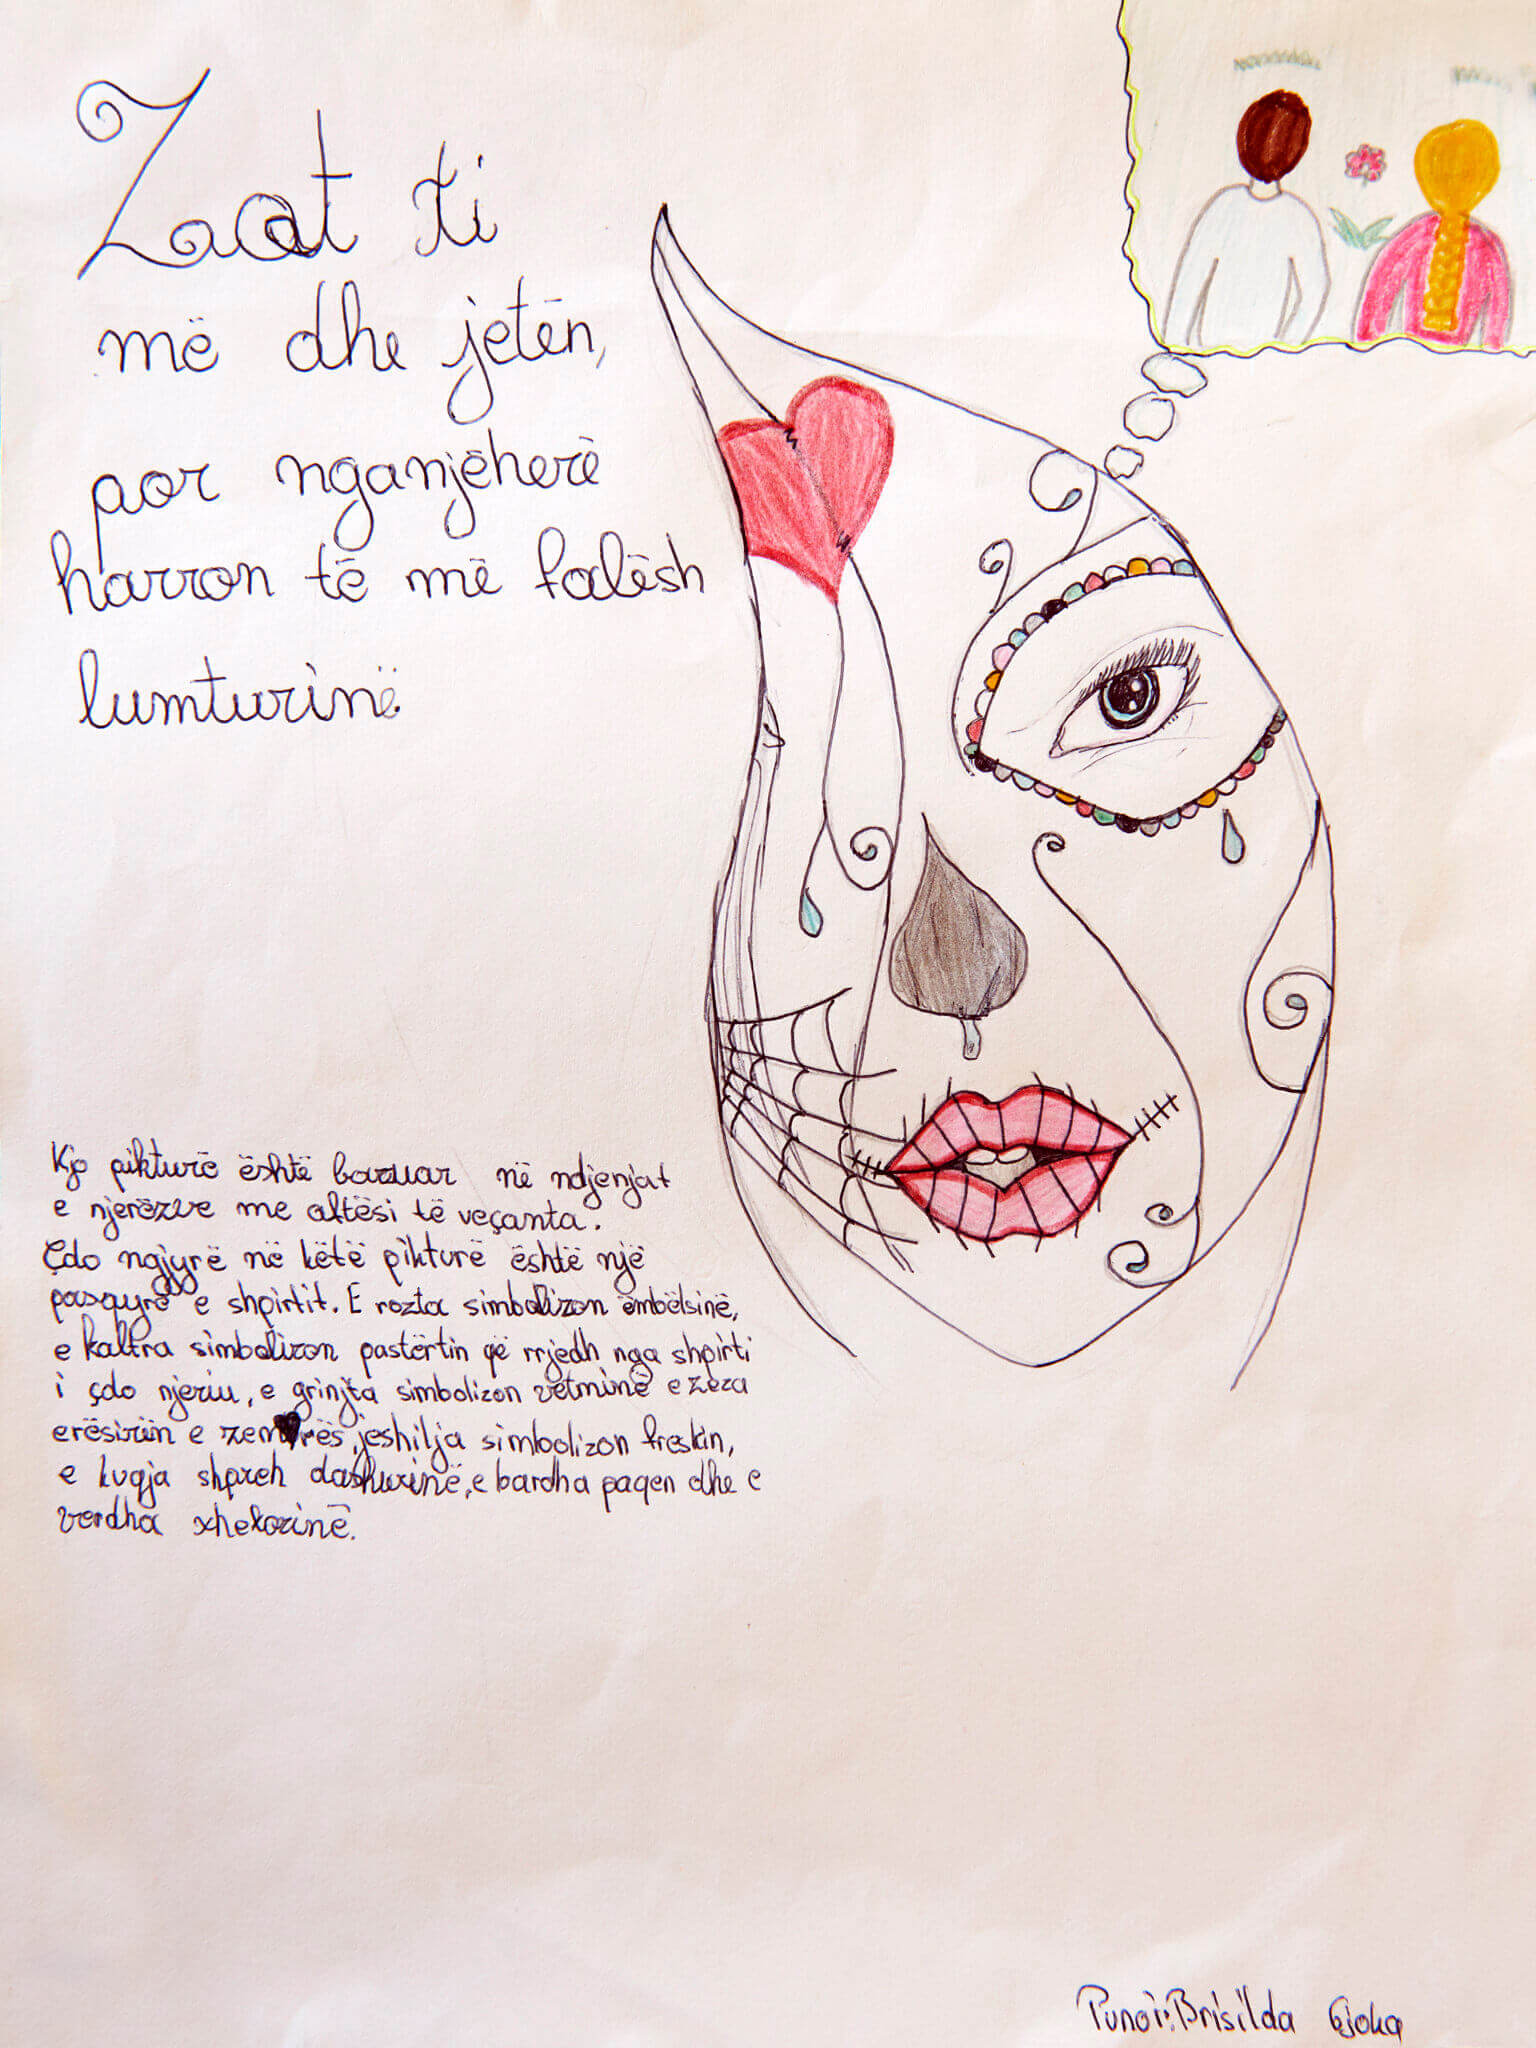 Zot ti
më dhe jetën,
por nganjëherë
harron të më falësh
lumturinë
Kjo pikturë është bazuar në ndjenjat
e njerëzve me aftësi të veçanta.
Çdo ngjyrë në këtë pikturë është një
pasqyrë e shpirtit. E rozta simbolizon ëmbëlsinë,
e kaltra simbolizon pastërtin që rrjedh nga shpirti
i çdo njeriu, e grinjta simbolizon vetminë e zeza
erësirën e zemrës, jeshilja simbolizon freskin,
e kuqja shpreh dashurinë, e bardha paqen dhe e
verdha xhelozinë.
Punoi: Brisilda Gjoka